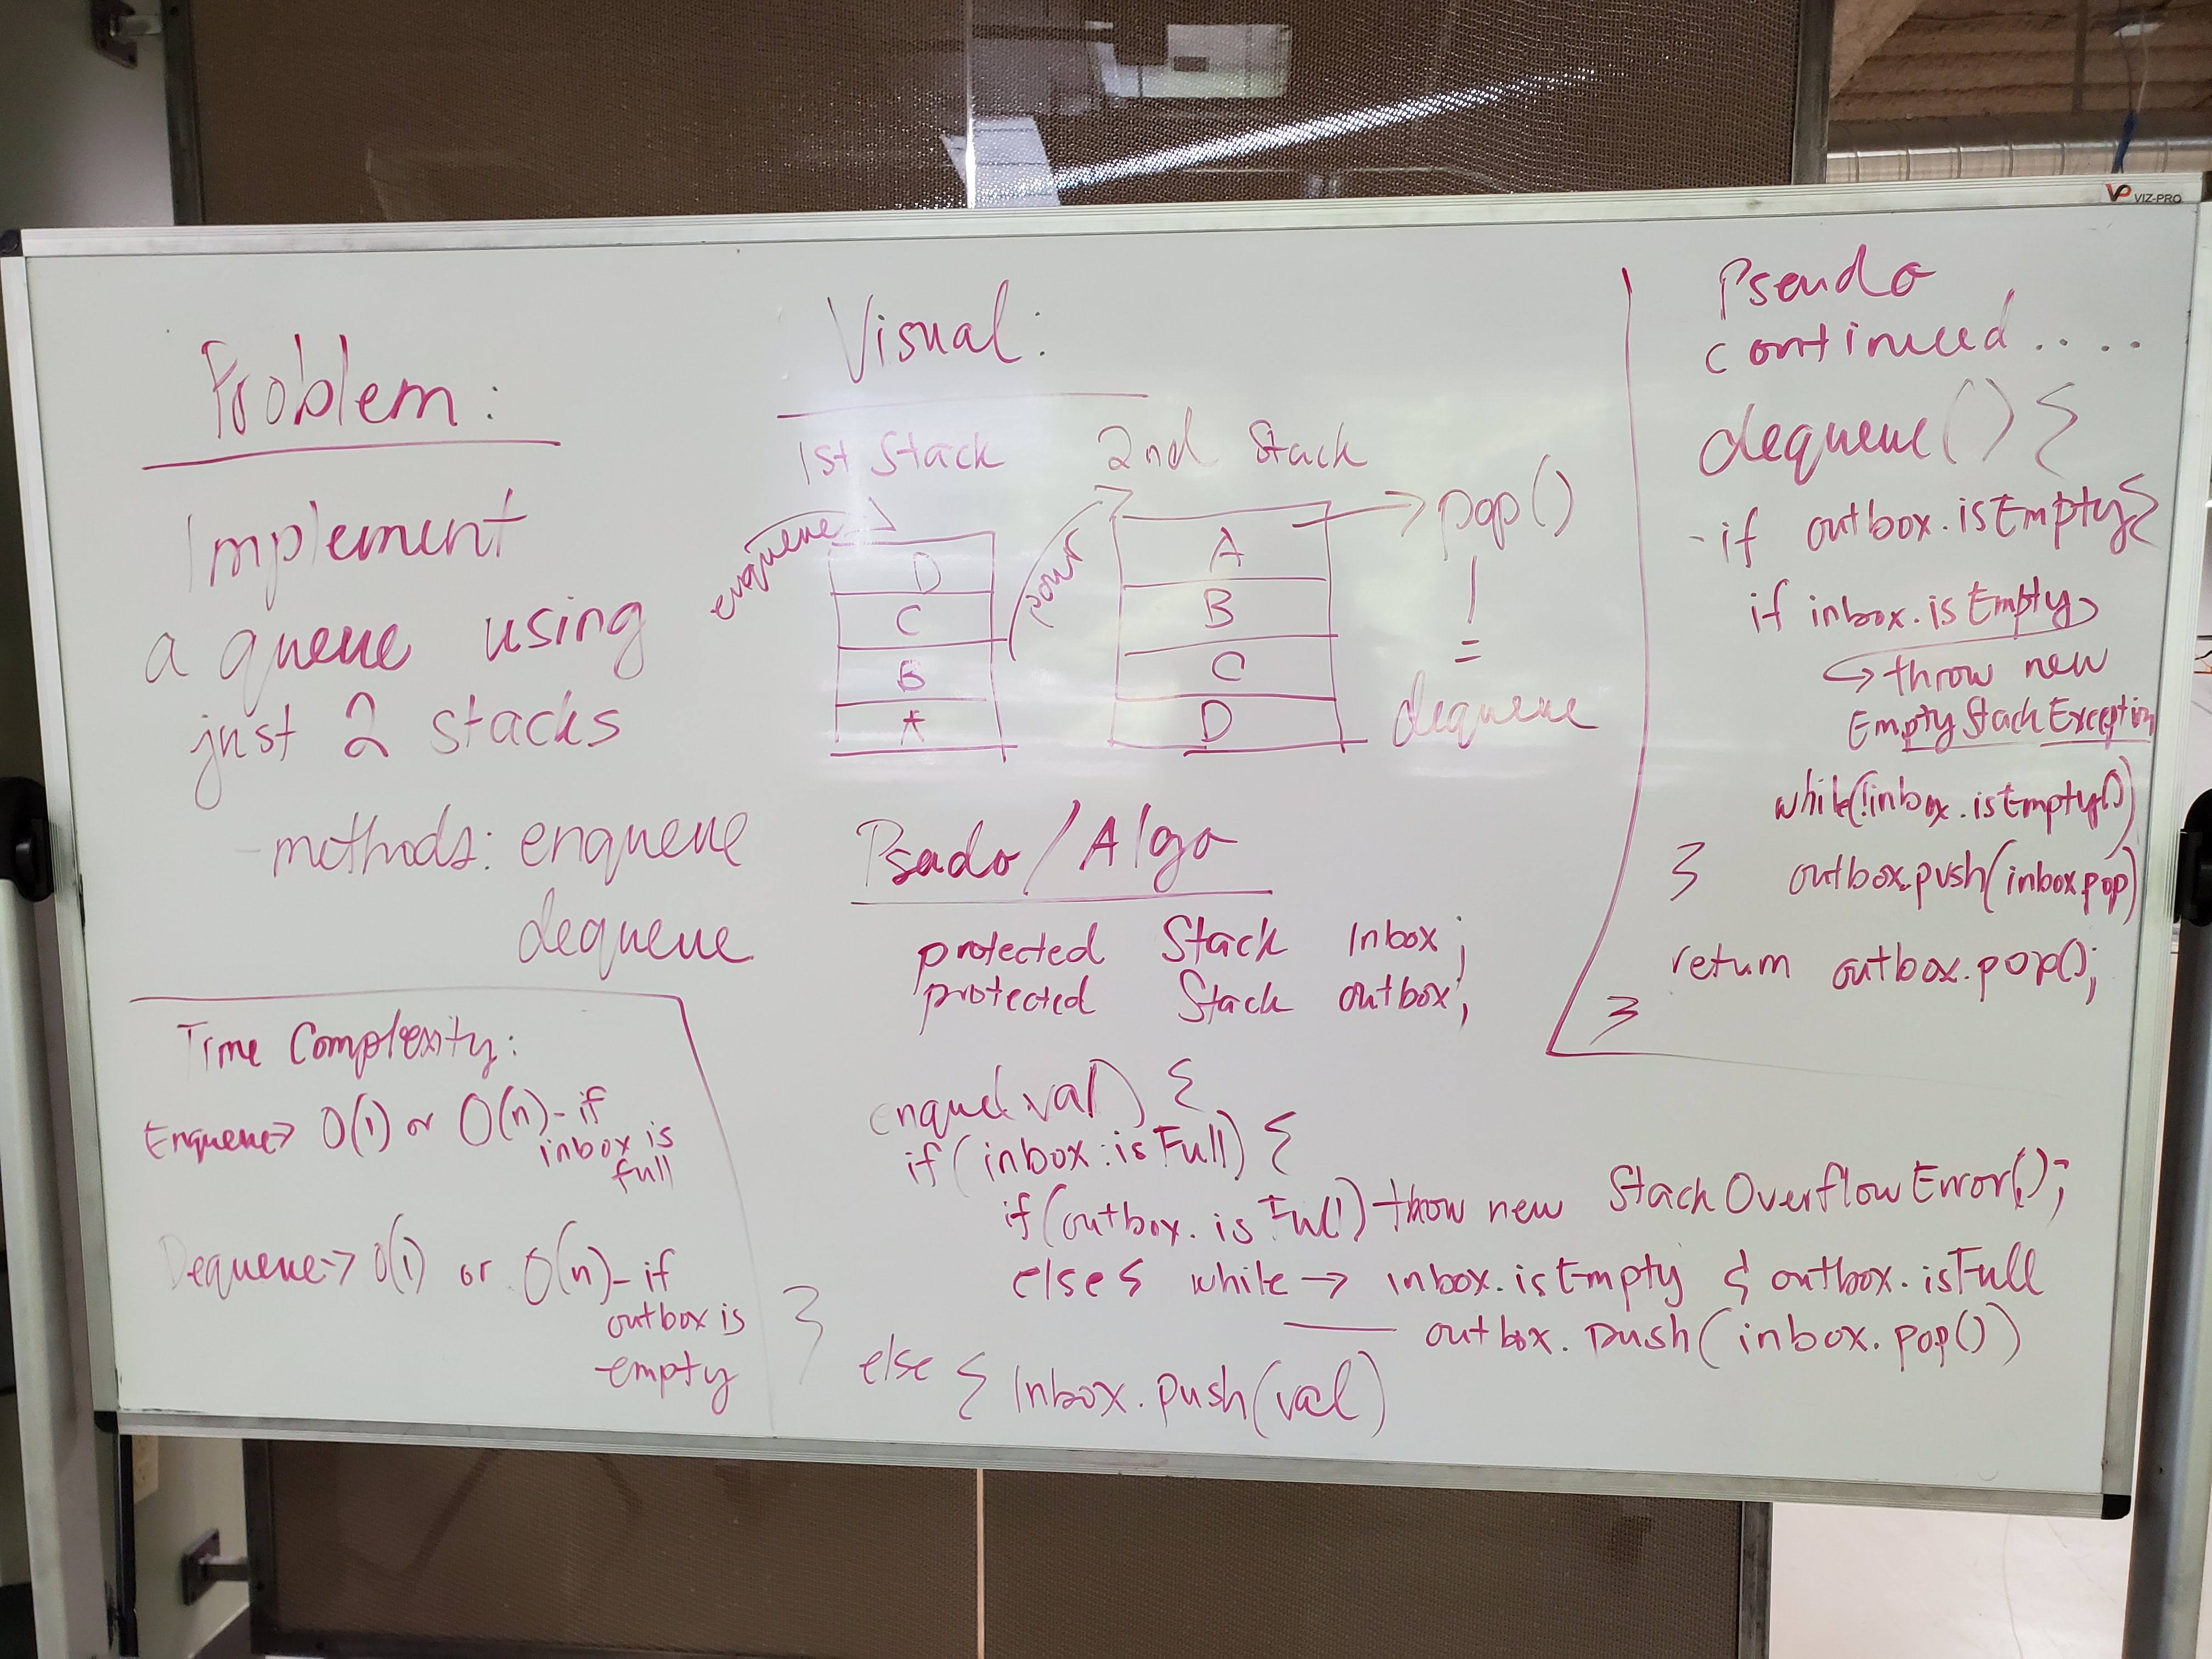 VIZ-PRO
Problem:
Implement
a queue using
just 2 stacks
-methods: enqueue
dequeue
Time Complexity:
Enqueue→ O(1) or O(n)-if
inbox is
full
Dequeue→ O(1) or O(n)-if
outbox is
empty
Visual:
1st Stack
2nd Stack
enqueue
D
C
B
A
pour
A
B
C
D
→ pop()
=
dequeue
Psado/Algo
protected Stack Inbox;
protected Stack outbox;
enque(val) {
if(inbox.isFull) {
if(outbox.isFull) throw new StackOverflowError();
else{ while → inbox.isEmpty & outbox.isFull
outbox.push(inbox.pop())
}
else { Inbox.push(val)
Pseudo
continued....
dequeue() {
-if outbox.isEmpty{
if inbox.isEmpty
↪ throw new
EmptyStackException
while(!inbox.isEmpty())
} outbox.push(inbox.pop)
return outbox.pop();
}